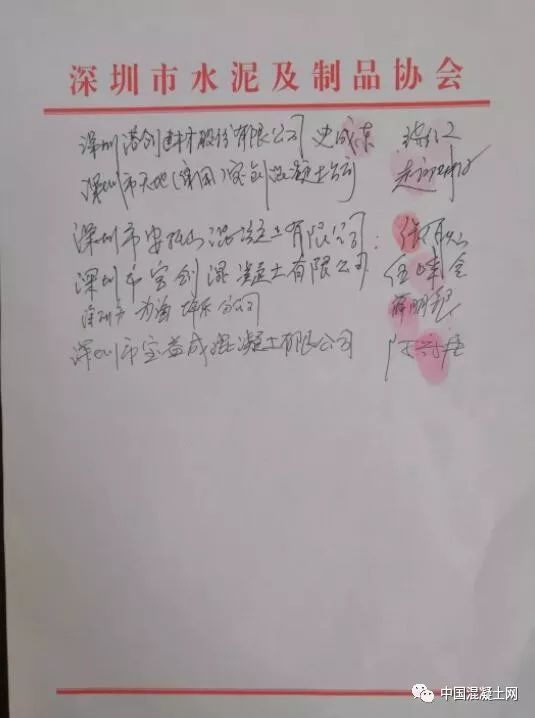 深圳市水泥及制品协会
深圳港创建材股份有限公司 史成东
深圳市天地(集团)宝创混凝土公司
深圳市安托山混凝土有限公司:
深圳市宝创混凝土有限公司 伍峰金
深圳市 公司
深圳市宝益成混凝土有限公司
中国混凝土网